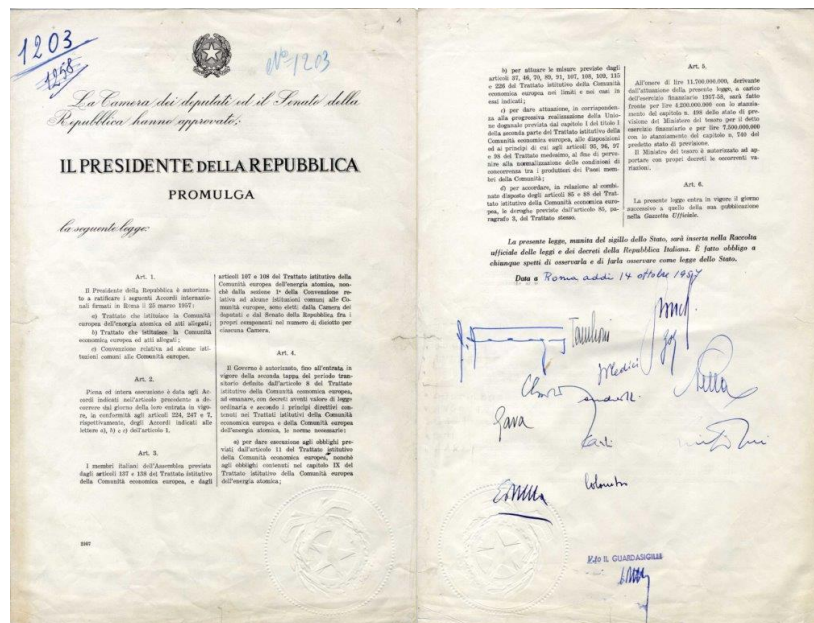 1203
1258
Nº 1203
La Camera dei deputati ed il Senato della
Repubblica hanno approvato;
IL PRESIDENTE DELLA REPUBBLICA
PROMULGA
la seguente legge:
Art. 1.
Il Presidente della Repubblica è autorizza-
to a ratificare i seguenti Accordi internazio-
nali firmati in Roma il 25 marzo 1957:
a) Trattato che istituisce la Comunità
europea dell'energia atomica ed atti allegati;
b) Trattato che istituisce la Comunità
economica europea ed atti allegati;
c) Convenzione relativa ad alcune isti-
tuzioni comuni alle Comunità europee.
Art. 2.
Piena ed intera esecuzione è data agli Ac-
cordi indicati nell'articolo precedente a de-
correre dal giorno della loro entrata in vigo-
re, in conformità agli articoli 224, 247 e 7,
rispettivamente, degli Accordi indicati alle
lettere a), b) e c) dell'articolo 1.
Art. 3.
I membri italiani dell'Assemblea prevista
dagli articoli 137 e 138 del Trattato istitutivo
della Comunità economica europea, e dagli
2107
articoli 107 e 108 del Trattato istitutivo della
Comunità europea dell'energia atomica, non-
chè dalla sezione 1ª della Convenzione re-
lativa ad alcune istituzioni comuni alle Co-
munità europee, sono eletti dalla Camera dei
deputati e dal Senato della Repubblica fra i
propri componenti nel numero di diciotto per
ciascuna Camera.
Art. 4.
Il Governo è autorizzato, fino all'entrata in
vigore della seconda tappa del periodo tran-
sitorio definito dall'articolo 8 del Trattato
istitutivo della Comunità economica europea,
ad emanare, con decreti aventi valore di legge
ordinaria e secondo i principi direttivi con-
tenuti nei Trattati istitutivi della Comunità
economica europea e della Comunità europea
dell'energia atomica, le norme necessarie:
a) per dare esecuzione agli obblighi pre-
visti dall'articolo 11 del Trattato istitutivo
della Comunità economica europea, nonchè
agli obblighi contenuti nel capitolo IX del
Trattato istitutivo della Comunità europea
dell'energia atomica;
b) per attuare le misure previste dagli
articoli 37, 46, 70, 89, 91, 107, 108, 109, 115
e 226 del Trattato istitutivo della Comunità
economica europea nei limiti e nei casi in
essi indicati;
c) per dare attuazione, in corrisponden-
za alla progressiva realizzazione della Unio-
ne doganale prevista dal capitolo 1 del titolo I
della seconda parte del Trattato istitutivo della
Comunità economica europea, alle disposizioni
ed ai principi di cui agli articoli 95, 96, 97
e 98 del Trattato medesimo, al fine di perve-
nire alla normalizzazione delle condizioni di
concorrenza tra i produttori dei Paesi mem-
bri della Comunità;
d) per accordare, in relazione al combi-
nato disposto degli articoli 85 e 88 del Trat-
tato istitutivo della Comunità economica euro-
pea, le deroghe previste dall'articolo 85, pa-
ragrafo 3, del Trattato stesso.
Art. 5.
All'onere di lire 11.700.000.000, derivante
dall'attuazione della presente legge, a carico
dell'esercizio finanziario 1957-58, sarà fatto
fronte per lire 4.200.000.000 con lo stanzia-
mento del capitolo n. 498 dello stato di pre-
visione del Ministero del tesoro per il detto
esercizio finanziario e per lire 7.500.000.000
con lo stanziamento del capitolo n. 740 del
predetto stato di previsione.
Il Ministro del tesoro è autorizzato ad ap-
portare con propri decreti le occorrenti va-
riazioni.
Art. 6.
La presente legge entra in vigore il giorno
successivo a quello della sua pubblicazione
nella Gazzetta Ufficiale.
La presente legge, munita del sigillo dello Stato, sarà inserta nella Raccolta
ufficiale delle leggi e dei decreti della Repubblica Italiana. È fatto obbligo a
chiunque spetti di osservarla e di farla osservare come legge dello Stato.
Data a Roma addì 14 ottobre 1957
Tambroni
Medici
Pella
Gava
Colombo
Vº IL GUARDASIGILLI